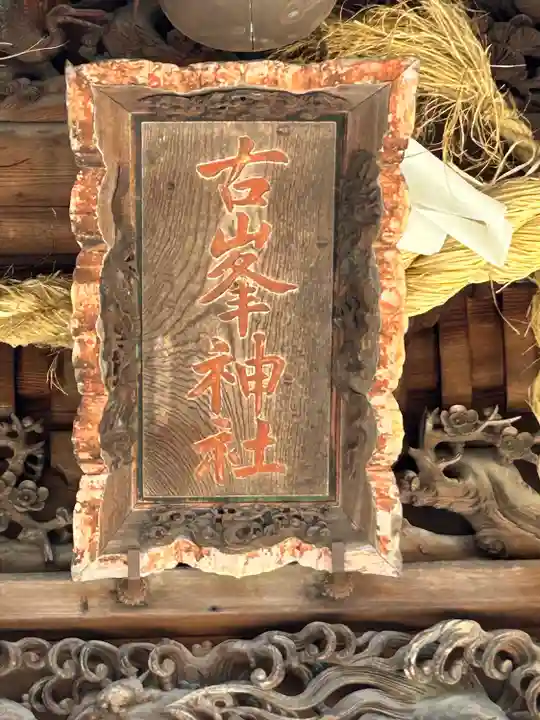 古峯神社